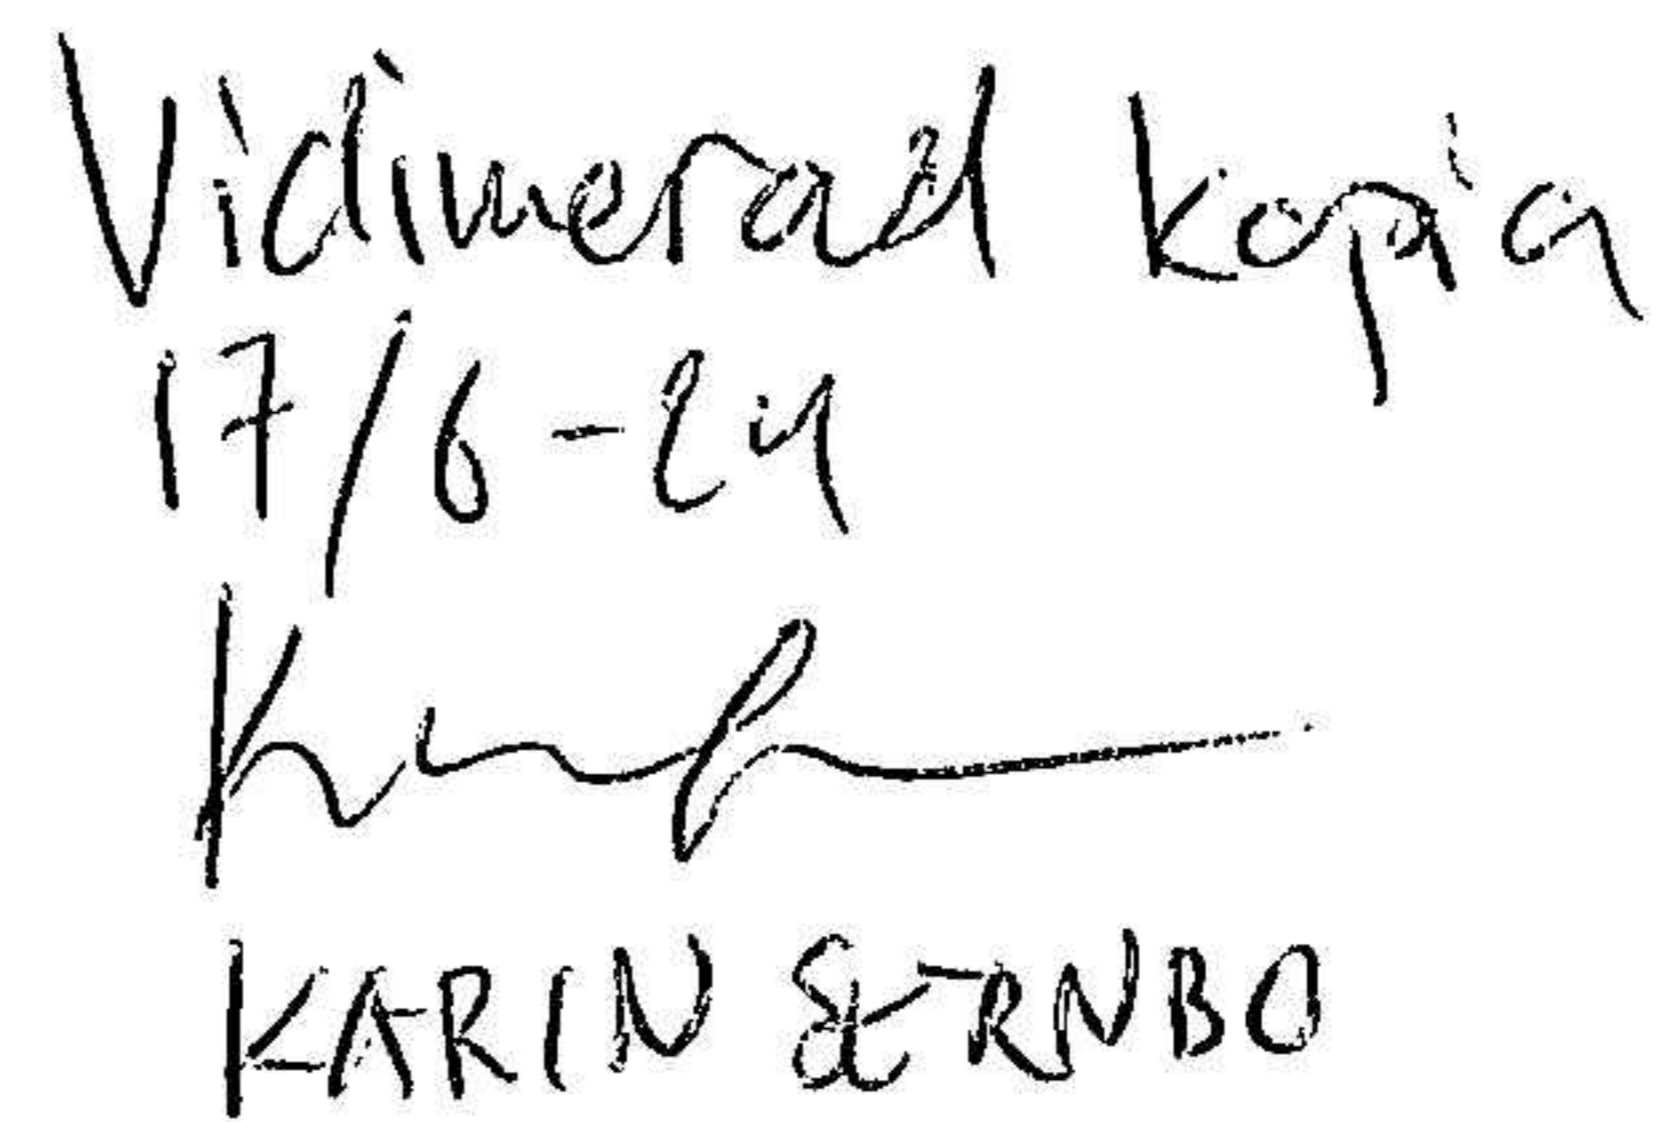 Vidimerad kopia
17/6-24
KARIN SERNBO